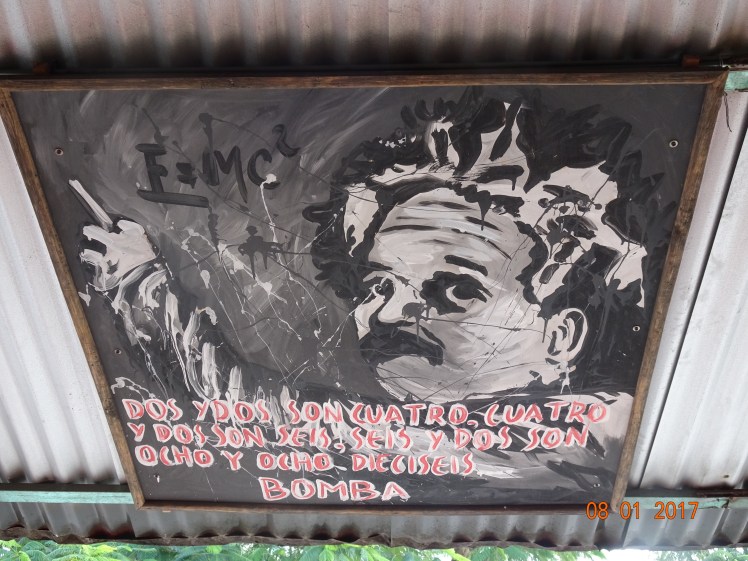 E=MC²
DOS Y DOS SON CUATRO, CUATRO
Y DOS SON SEIS, SEIS Y DOS SON
OCHO Y OCHO DIECISEIS
BOMBA
08 01 2017